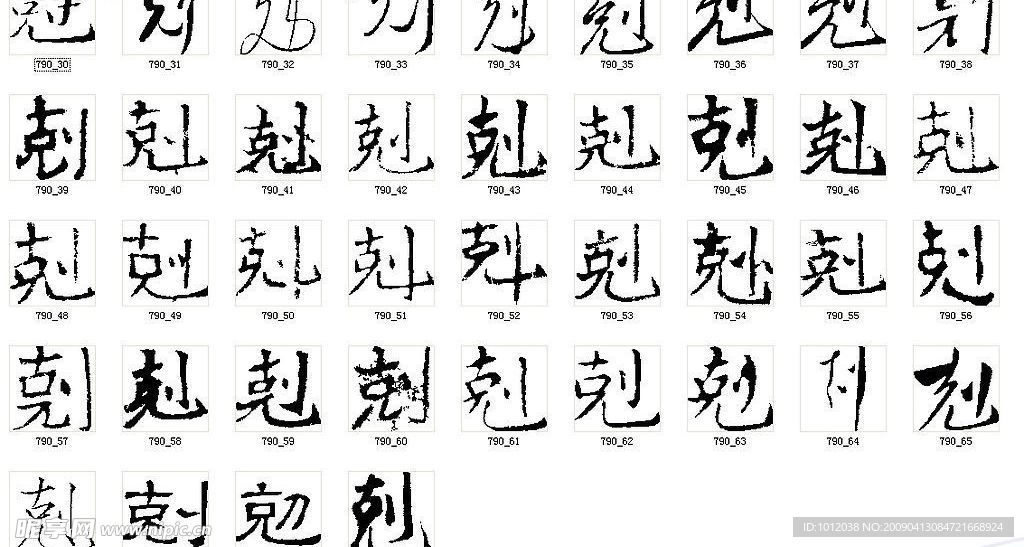 790_30 790_31 790_32 790_33 790_34 790_35 790_36 790_37 790_38
剋 剋 剋 剋 剋 剋 剋 剋 剋
790_39 790_40 790_41 790_42 790_43 790_44 790_45 790_46 790_47
剋 剋 剋 剋 剋 剋 剋 剋 剋
790_48 790_49 790_50 790_51 790_52 790_53 790_54 790_55 790_56
剋 剋 剋 剋 剋 剋 剋 剋
790_57 790_58 790_59 790_60 790_61 790_62 790_63 790_64 790_65
剋 剋 剋 剋
昵享网 www.nipic.cn
ID:1012038 NO:20090413084721668924